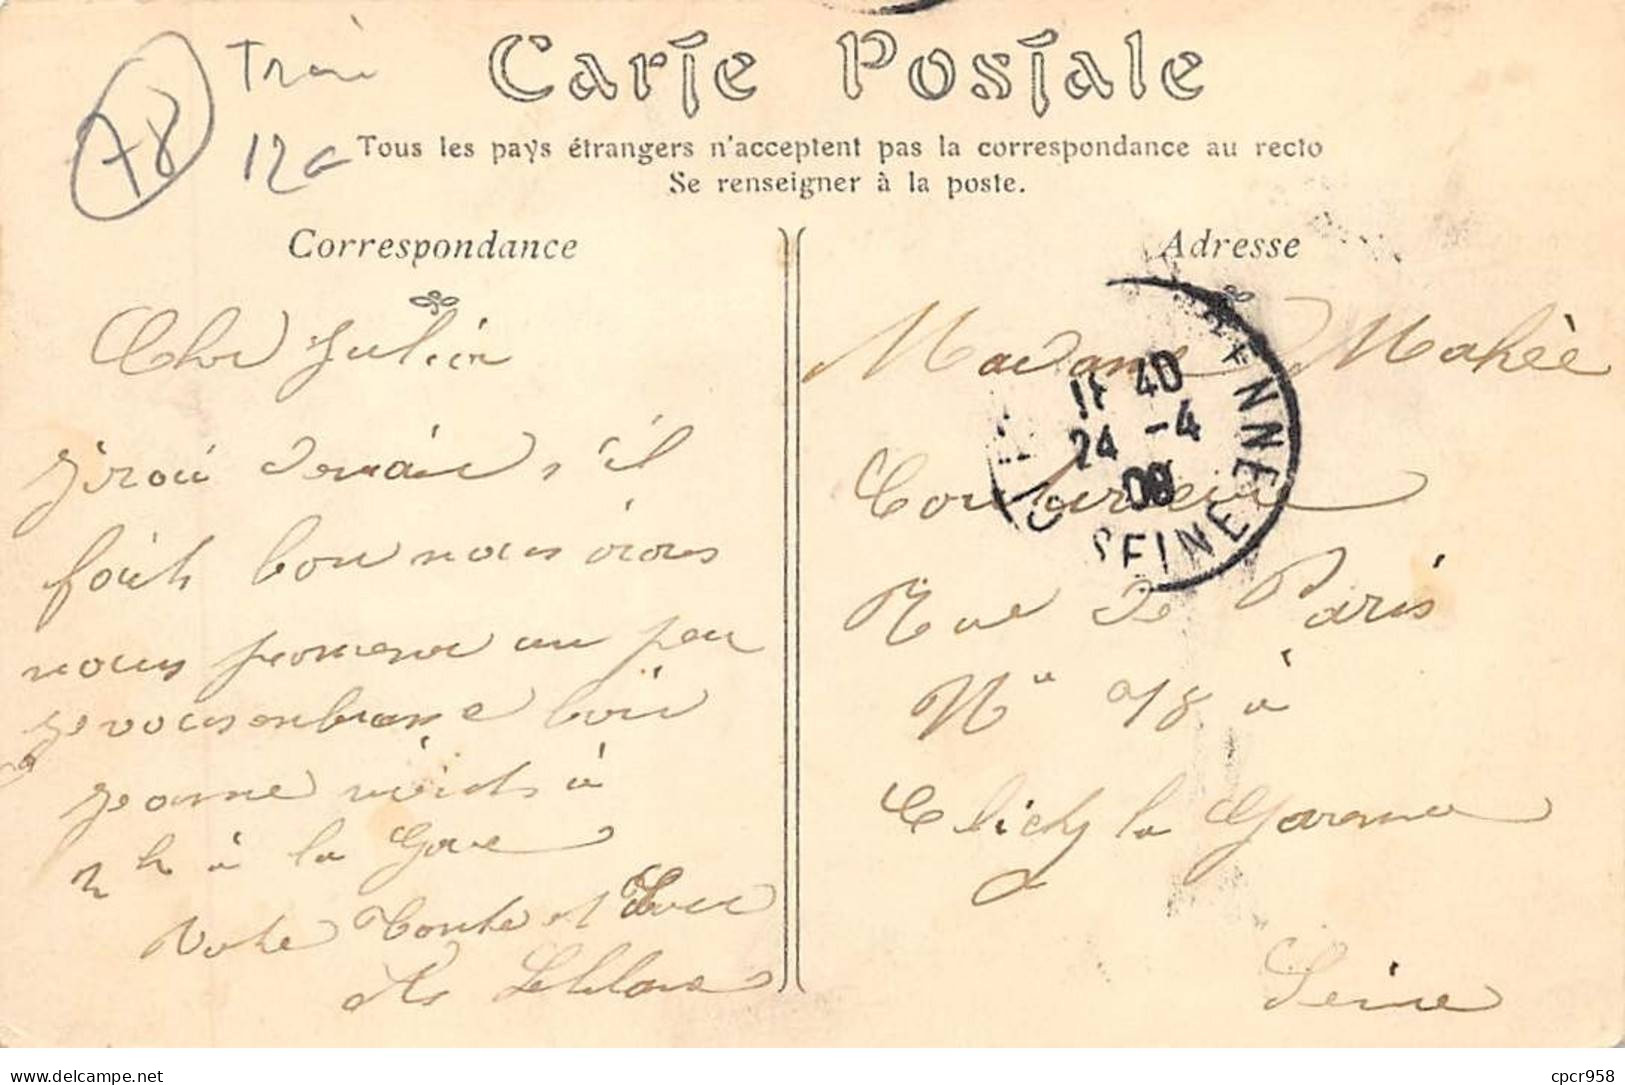 78
12€
Carte Postale
Tous les pays étrangers n'acceptent pas la correspondance au recto
Se renseigner à la poste.
Correspondance
Adresse
Cher Julien
J'irai demain s'il
fait bon nous irons
nous promener un peu
je vous embrasse bien
Jeanne viendra à
2 h à la Gare
Votre Tante et
Madame Mahée
Couturière
Rue de Paris
No 78 à
Clichy la Garenne
Seine
11 40
24 -4
09
SEINE
delcampe.net
cpcr958